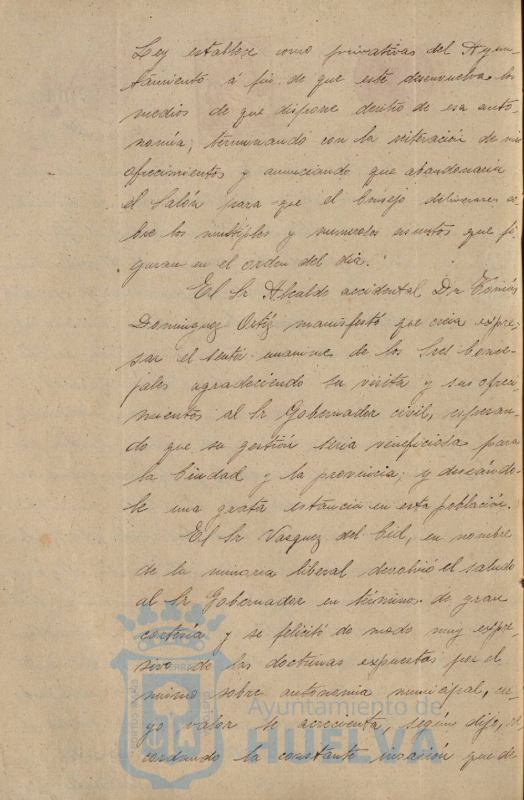 Ley establece como privativas del Ayun-
tamiento á fin de que este desenvuelva los
medios de que dispone dentro de esa auto-
nomía; terminando con la reiteración de sus
ofrecimientos y anunciando que abandonaria
el Salón para que el Consejo deliberare so
bre los multiples y numerosos asuntos que fi
guran en el orden del dia.
El Sr Alcalde accidental Dn Tomás
Dominguez Ortiz manifestó que creia expre
sar el sentir unanime de los Sres Conce-
jales agradeciendo su visita y sus ofreci
mientos al Sr Gobernador civil, esperan-
do que su gestión seria veneficiosa para
la Ciudad y la provincia; y deseándo-
le una grata estancia en esta población.
El Sr Vasquez del Cid, en nombre
de la minoria liberal devolvió el saludo
al Sr Gobernador en términos de gran
cortesía y se felicitó de modo muy expre
sivo de las doctrinas expuestas por el
mismo sobre autonomia municipal, cu-
yo valor se acrecienta, según dijo, re
cordando la constante invasión que de
Ayuntamiento de
HUELVA